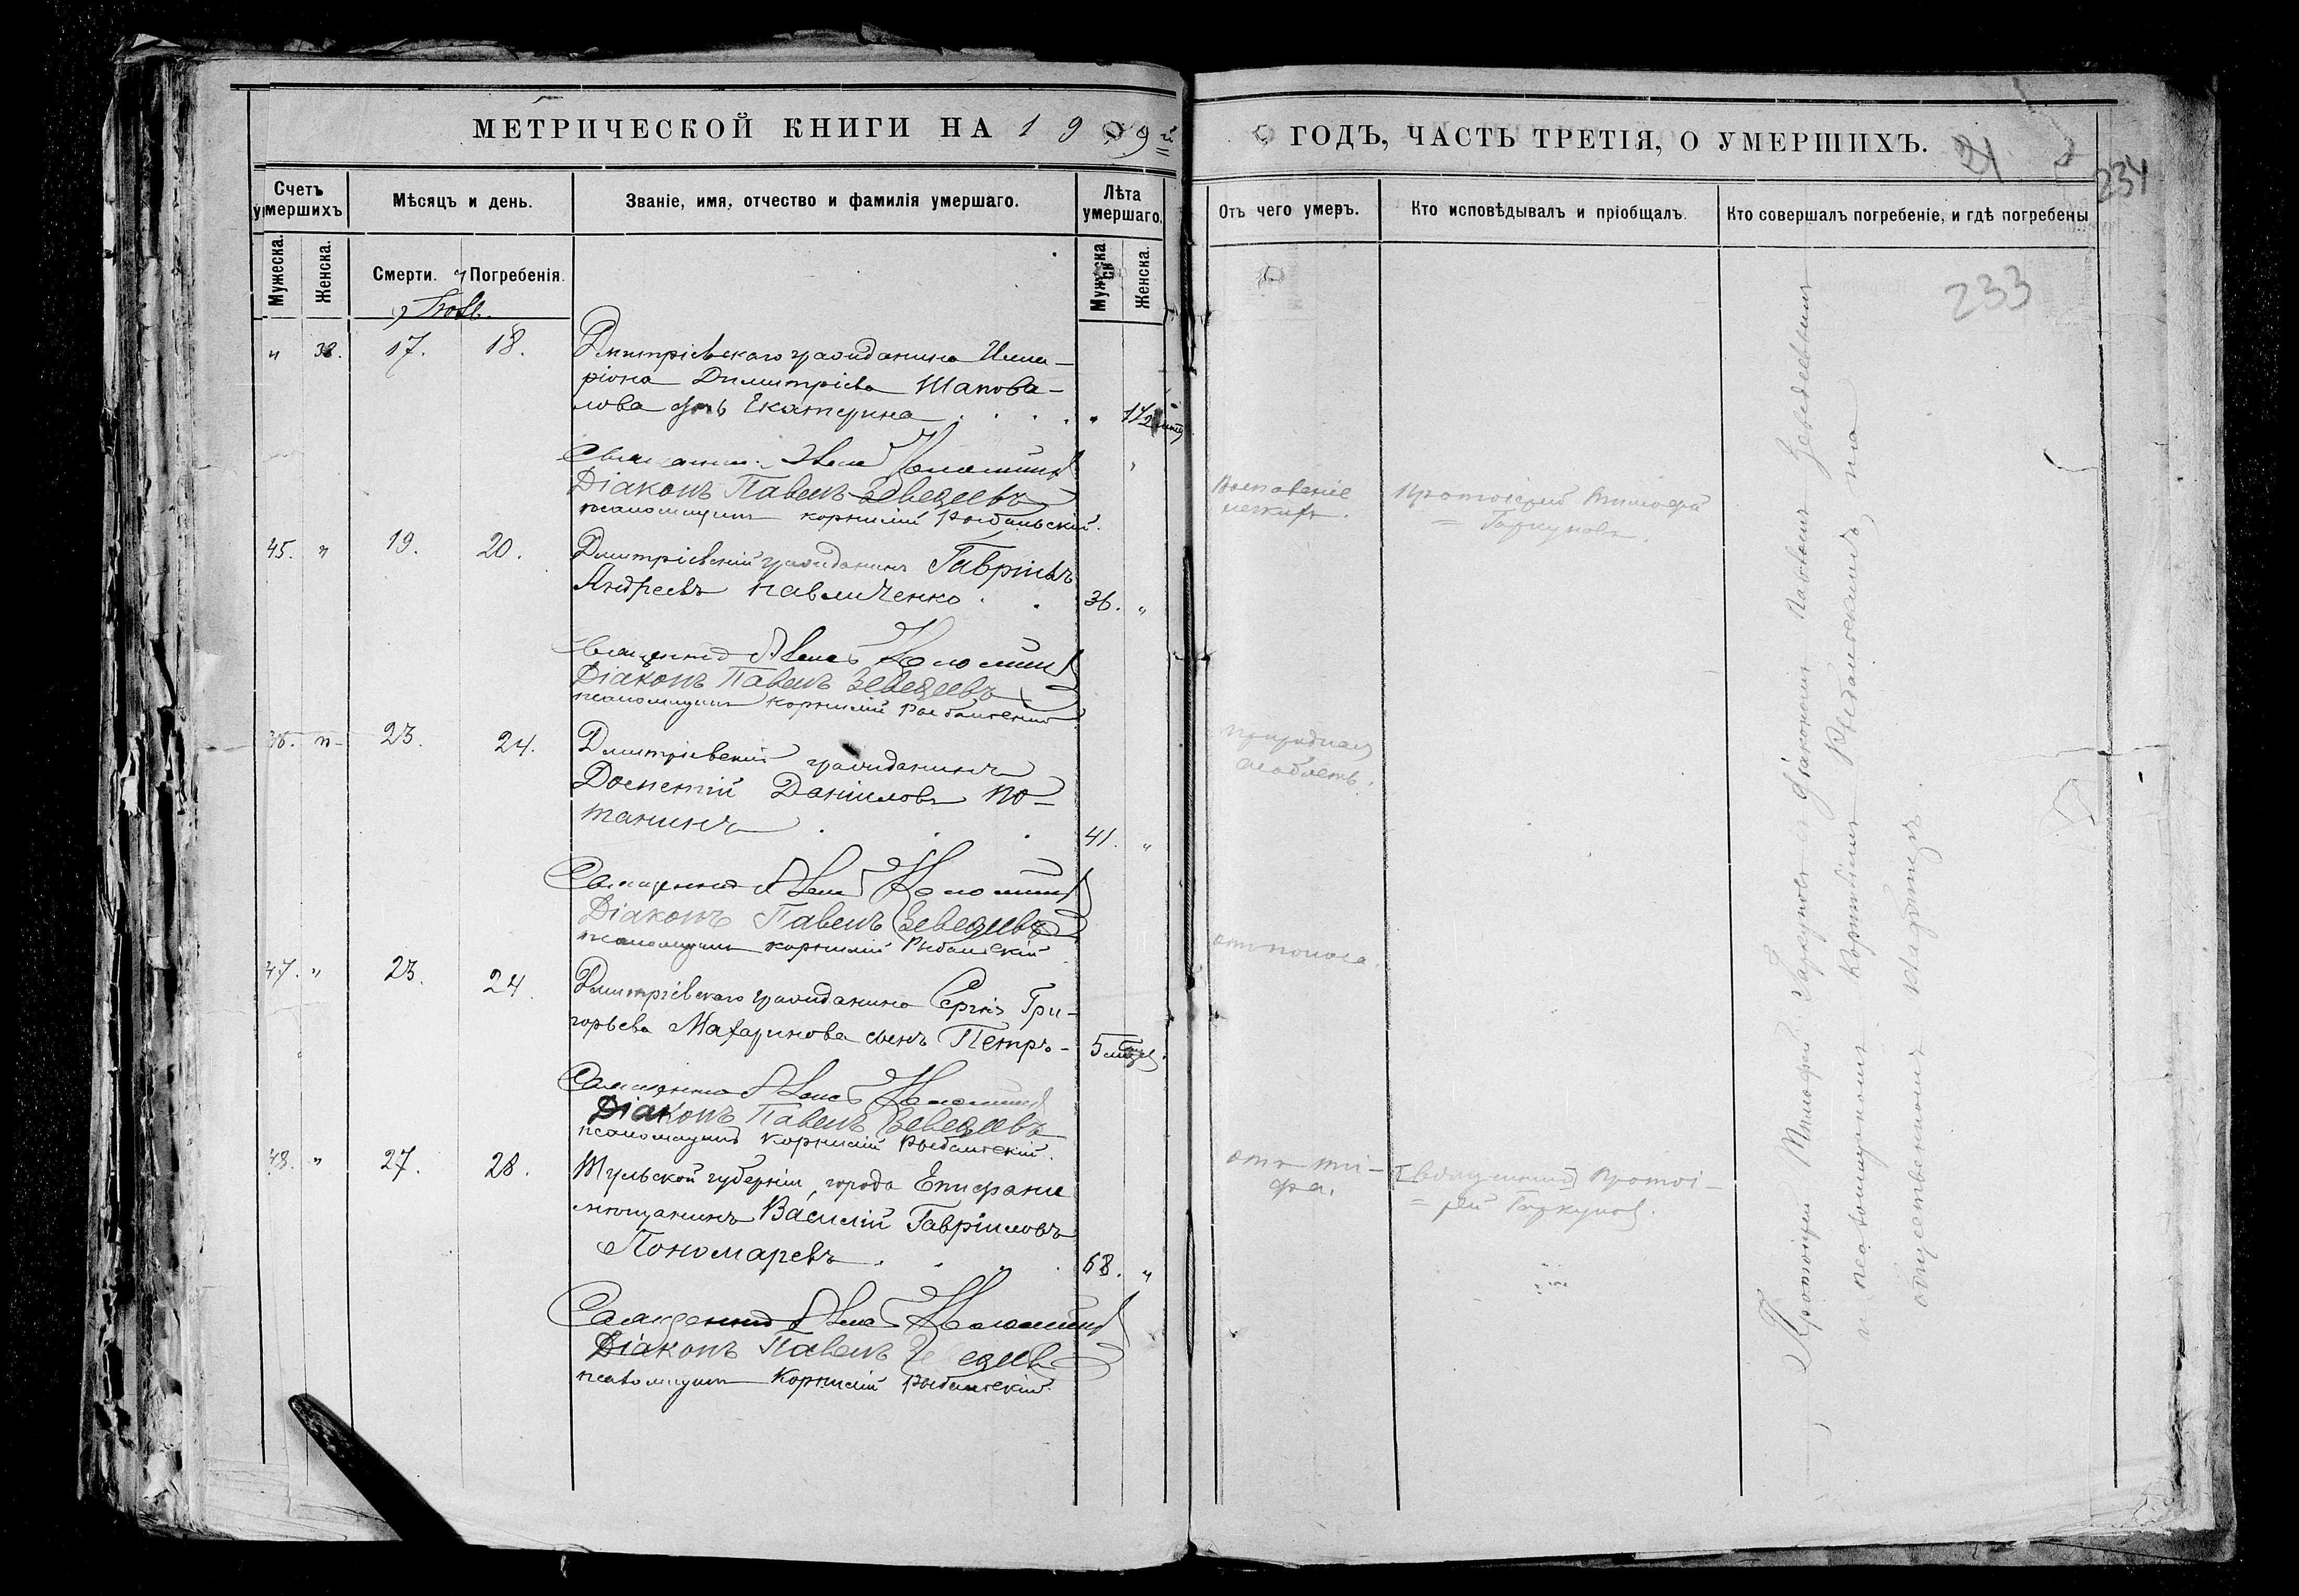 МЕТРИЧЕСКОЙ КНИГИ НА 1909й
ГОДЪ, ЧАСТЬ ТРЕТІЯ, О УМЕРШИХЪ.
21
234
233
Счетъ умершихъ
Мѣсяцъ и день.
Званіе, имя, отчество и фамилія умершаго.
Лѣта умершаго.
Отъ чего умеръ.
Кто исповѣдывалъ и пріобщалъ.
Кто совершалъ погребеніе, и гдѣ погребены
Мужеска.
Женска.
Смерти.
Погребенія.
Мужеска
Женска.
"
38.
17.
18.
Дмитріевскаго гражданина Илла-
ріона Димитріева Шапова-
лова дочь Екатерина
Діаконъ Павелъ Зеведеевъ
псаломщикъ Корнилій Рыбальскій.
45. "
19.
20.
Дмитріевскій гражданинъ Гавріилъ
Андреевъ Павличенко
36. "
Воспаленіе
легкихъ.
Протоіерей Тимофей
= Гаркуновъ.
Священникъ
Діаконъ Павелъ Зеведеевъ
псаломщикъ Корнилій Рыбальскій
23.
24.
Дмитріевскій гражданинъ
Досиѳтій Даніиловъ По-
танинъ
41. "
природная
слабость.
Священникъ
Діаконъ Павелъ Зеведеевъ
псаломщикъ Корнилій Рыбальскій
47. "
23.
24.
Дмитріевскаго гражданина Сергія Гри-
горьева Махаринова сынъ Петръ-
5
отъ поноса.
Священникъ
Діаконъ Павелъ Зеведеевъ
псаломщикъ Корнилій Рыбальскій.
48. "
27.
28.
Тульской губерніи, города Епифани
мѣщанинъ Василій Гавріиловъ
Пономаревъ
68. "
отъ ти-
фа.
Протоі-
= рей Гаркуновъ.
Священникъ
Діаконъ Павелъ Зеведеевъ
псаломщикъ Корнилій Рыбальскій.
Протоіерей Тимофей Гаркуновъ съ діакономъ Павломъ Зеведеевымъ
и псаломщикомъ Корниліемъ Рыбальскимъ на
общественномъ кладбищѣ.